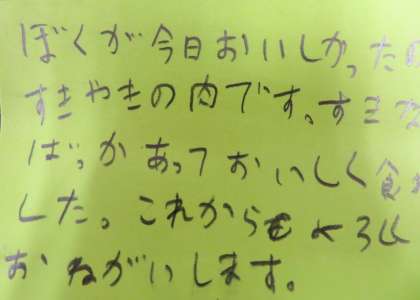 ぼくが今日おいしかったの
すきやきの肉です。すきな
ばっかあっておいしく食
した。これからもよろしく
おねがいします。